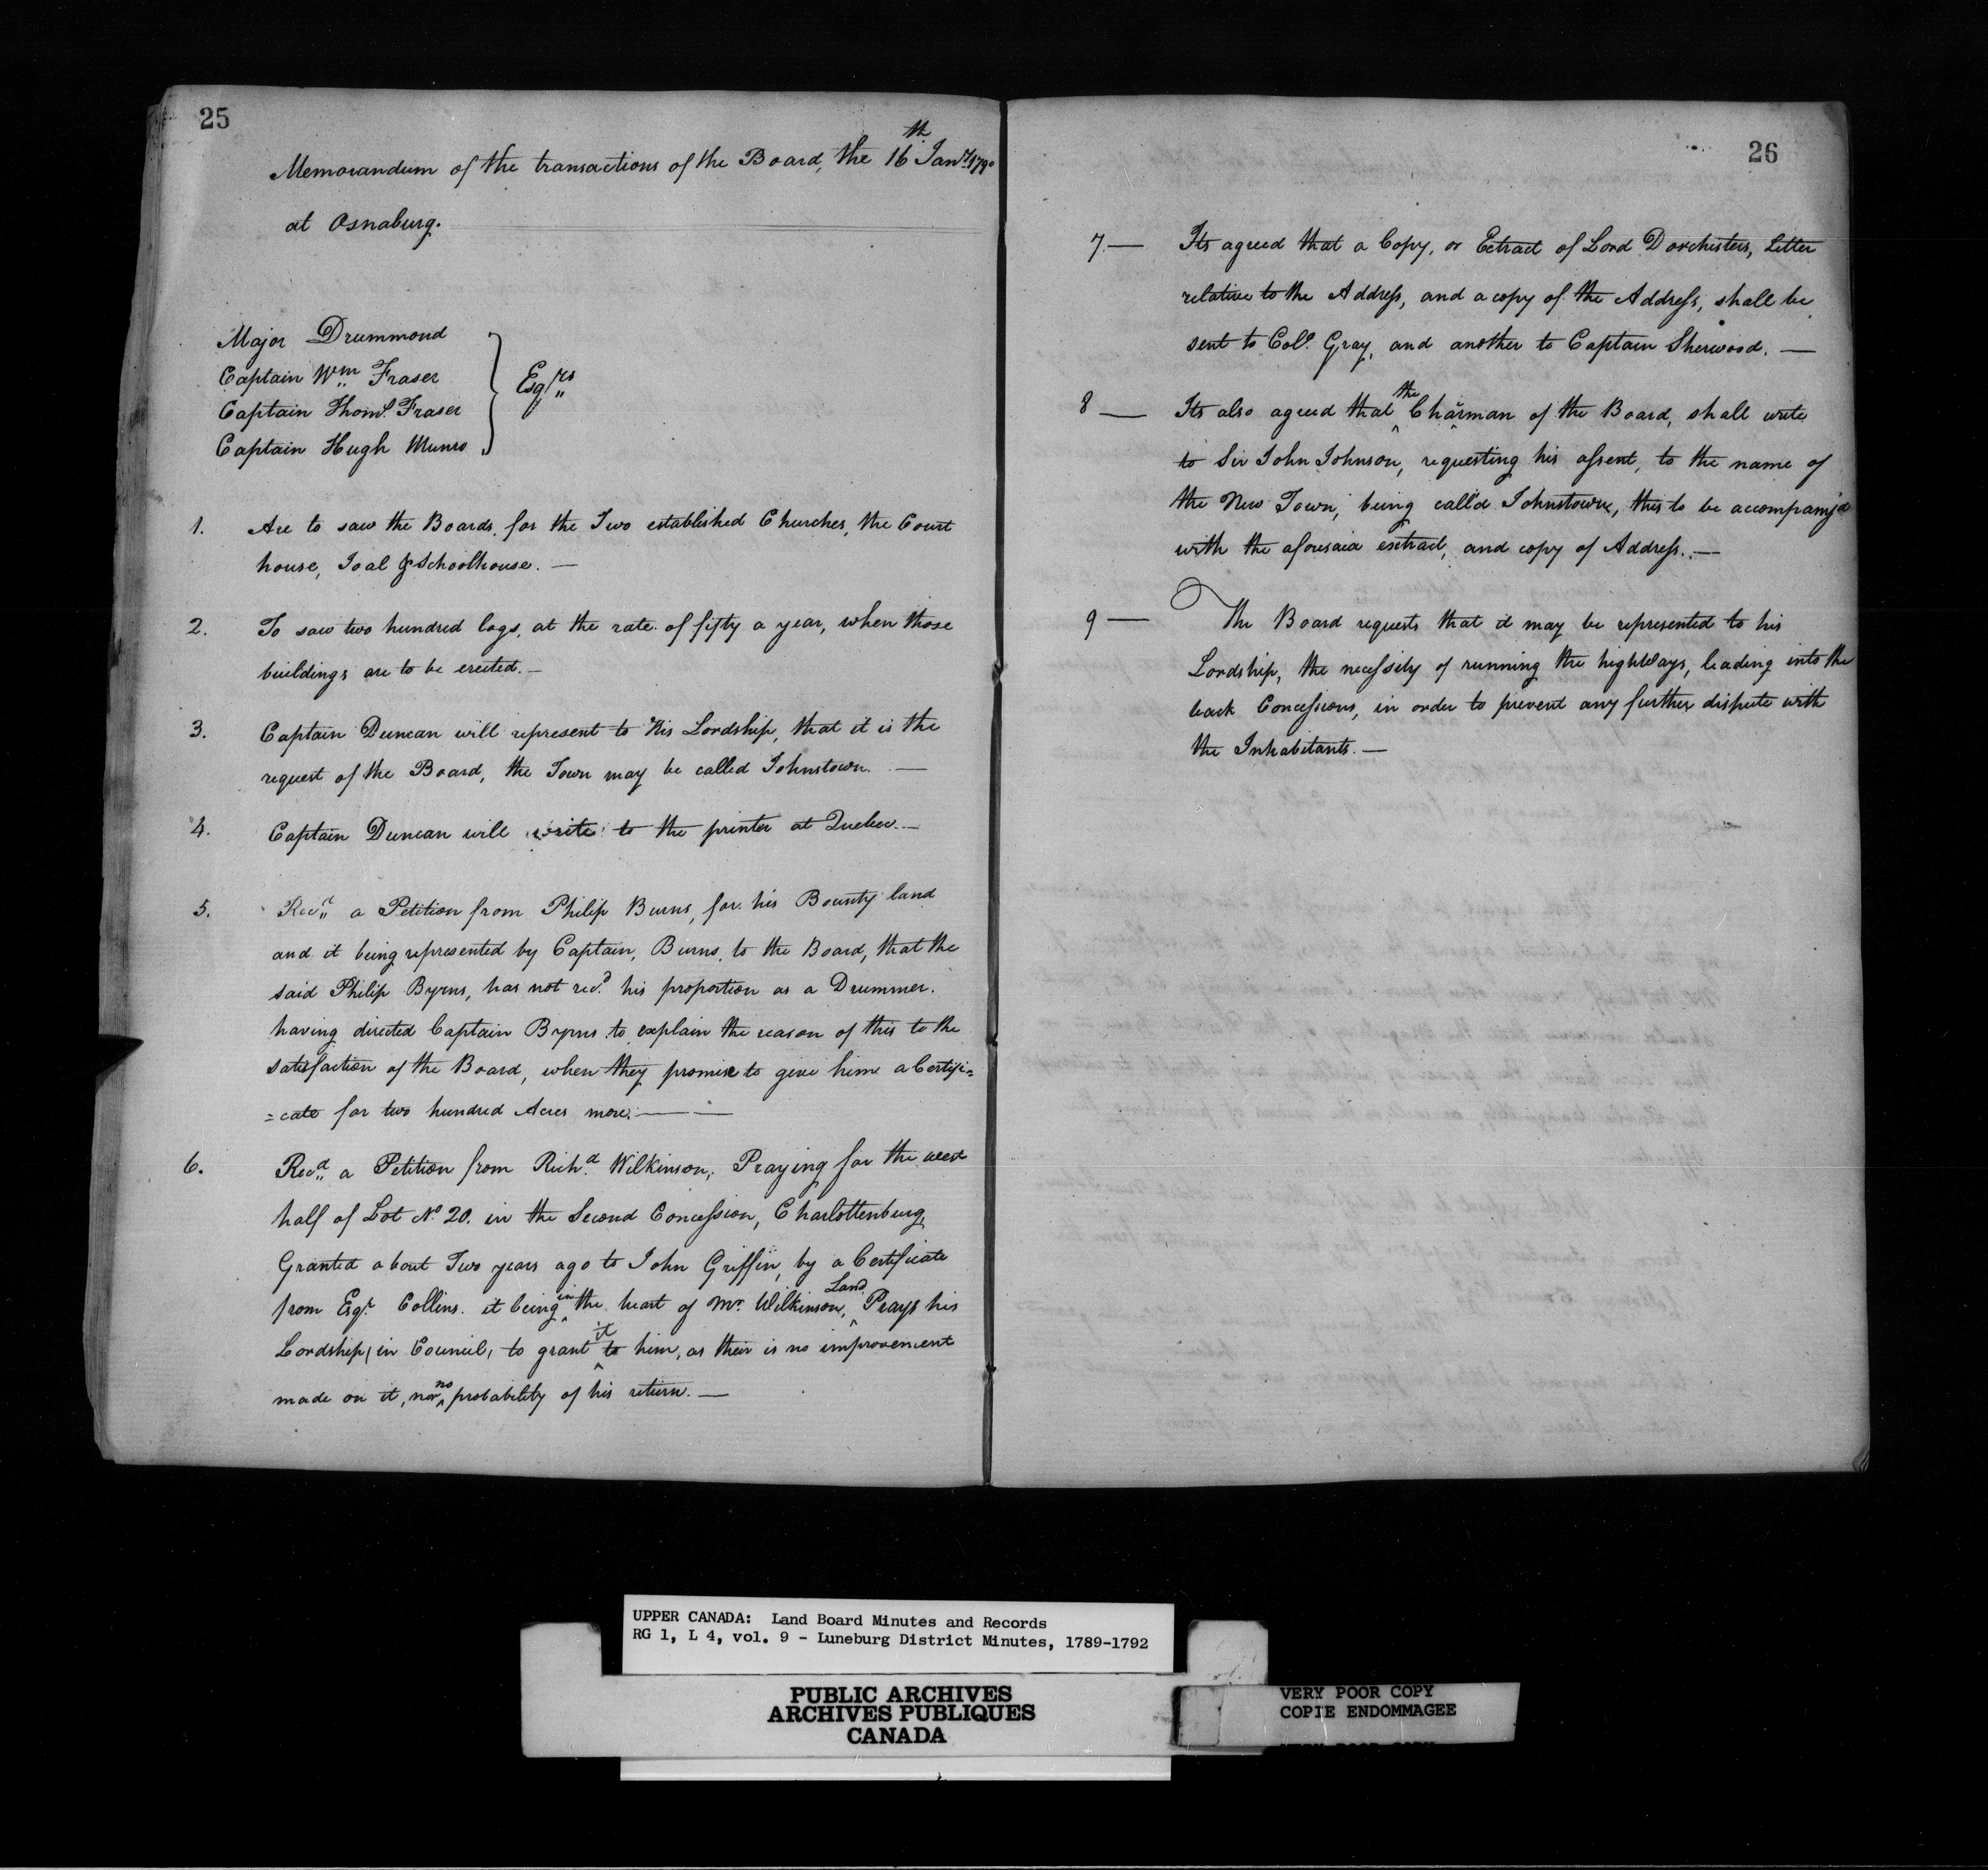 25
Memorandum of the transactions of the Board, the 16th Jany 1790
at Osnaburg.
Major Drummond
Captain Wm Fraser
Captain Thoms Fraser
Captain Hugh Munro
Esqrs
1. Are to saw the Boards, for the Two established Churches, the Court
house, Joal & Schoolhouse. —
2. To saw two hundred logs, at the rate of fifty a year, when those
buildings are to be erected. —
3. Captain Duncan will represent to His Lordship, that it is the
request of the Board, the Town may be called Johnstown. —
4. Captain Duncan will write to the printer at Quebec. —
5. Recd a Petition from Philip Burns, for his Bounty land
and it being represented by Captain, Burns, to the Board, that the
said Philip Byrns, has not recd his proportion as a Drummer.
having directed Captain Byrns to explain the reason of this to the
satisfaction of the Board, when they promise to give him a Certifi=
=cate for two hundred Acres more. —
6. Recd a Petition from Richd Wilkinson, Praying for the west
half of Lot No 20. in the Second Concession, Charlottenburg,
Granted about Two years ago to John Griffin, by a Certificate
from Esqr Collins. it being in the heart of Mr Wilkinson, Land Prays his
Lordship, in Council, to grant it to him, as their is no improvement
made on it, nor no probability of his return. —
26
7. — Its agreed that a Copy, or Extract of Lord Dorchesters, Letter
relative to the Address, and a copy of the Address, shall be
sent to Colo Gray, and another to Captain Sherwood. —
8 — Its also agreed that the Chairman of the Board, shall write
to Sir John Johnson, requesting his assent, to the name of
the New Town, being call'd Johnstown, this to be accompany'd
with the aforesaid extract, and copy of Address. —
9 — The Board requests that it may be represented to his
Lordship, the necessity of running the highways, leading into the
back Concessions, in order to prevent any further dispute with
the Inhabitants. —
UPPER CANADA: Land Board Minutes and Records
RG 1, L 4, vol. 9 - Luneburg District Minutes, 1789-1792
PUBLIC ARCHIVES
ARCHIVES PUBLIQUES
CANADA
VERY POOR COPY
COPIE ENDOMMAGEE